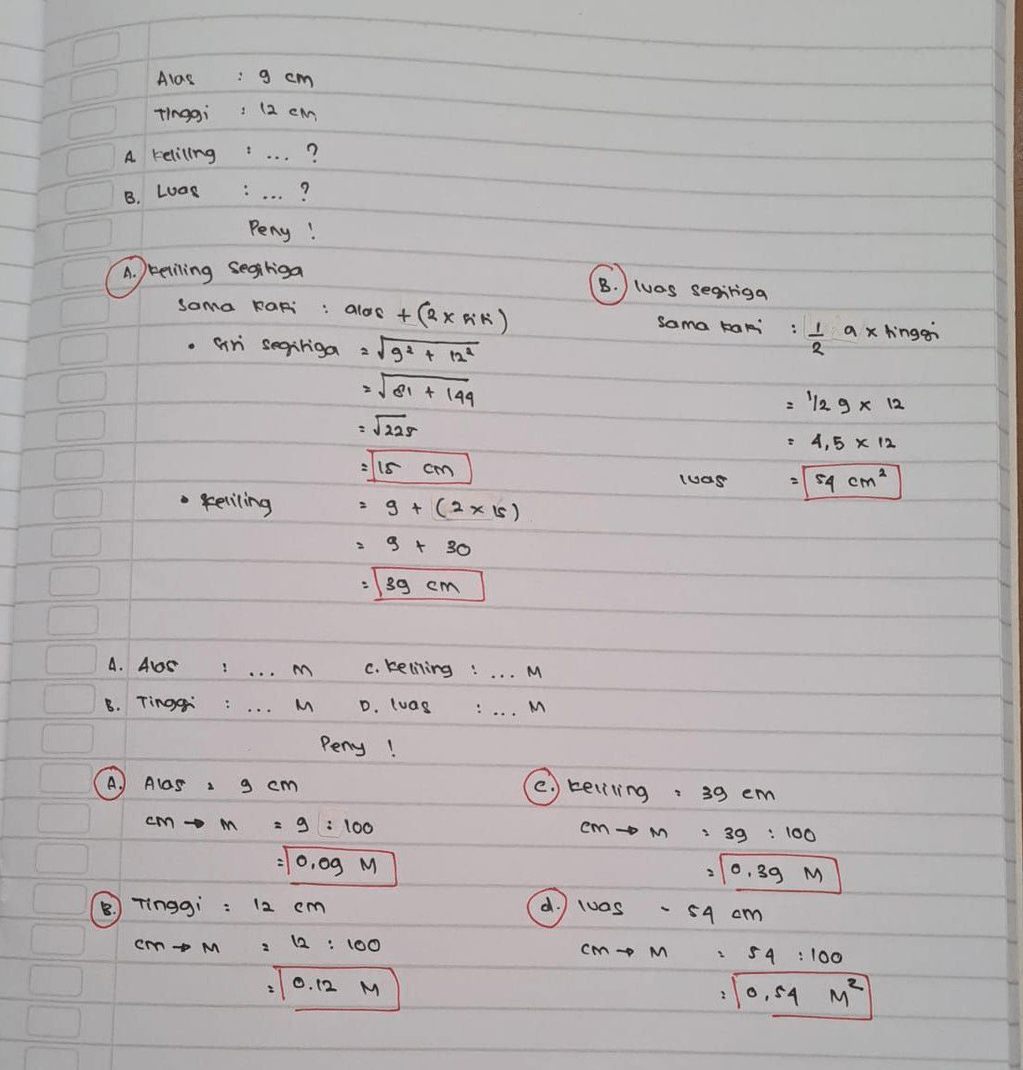 Alas : 9 cm
Tinggi : 12 cm
A. keliling : ... ?
B. Luas : ... ?
Peny !
A. keliling segitiga
sama kaki : alas + (2 x sisi)
• sisi segitiga = √9² + 12²
= √81 + 144
= √225
= 15 cm
• keliling = 9 + (2 x 15)
= 9 + 30
= 39 cm
B. luas segitiga
sama kaki : 1/2 a x tinggi
= 1/2 9 x 12
= 4,5 x 12
luas = 54 cm²
A. Alas : ... M
C. keliling : ... M
B. Tinggi : ... M
D. luas : ... M
Peny !
A. Alas = 9 cm
cm → M = 9 : 100
= 0,09 M
B. Tinggi = 12 cm
cm → M = 12 : 100
= 0.12 M
C. keliling = 39 cm
cm → M = 39 : 100
= 0.39 M
d. luas - 54 cm
cm → M = 54 : 100
= 0,54 M²